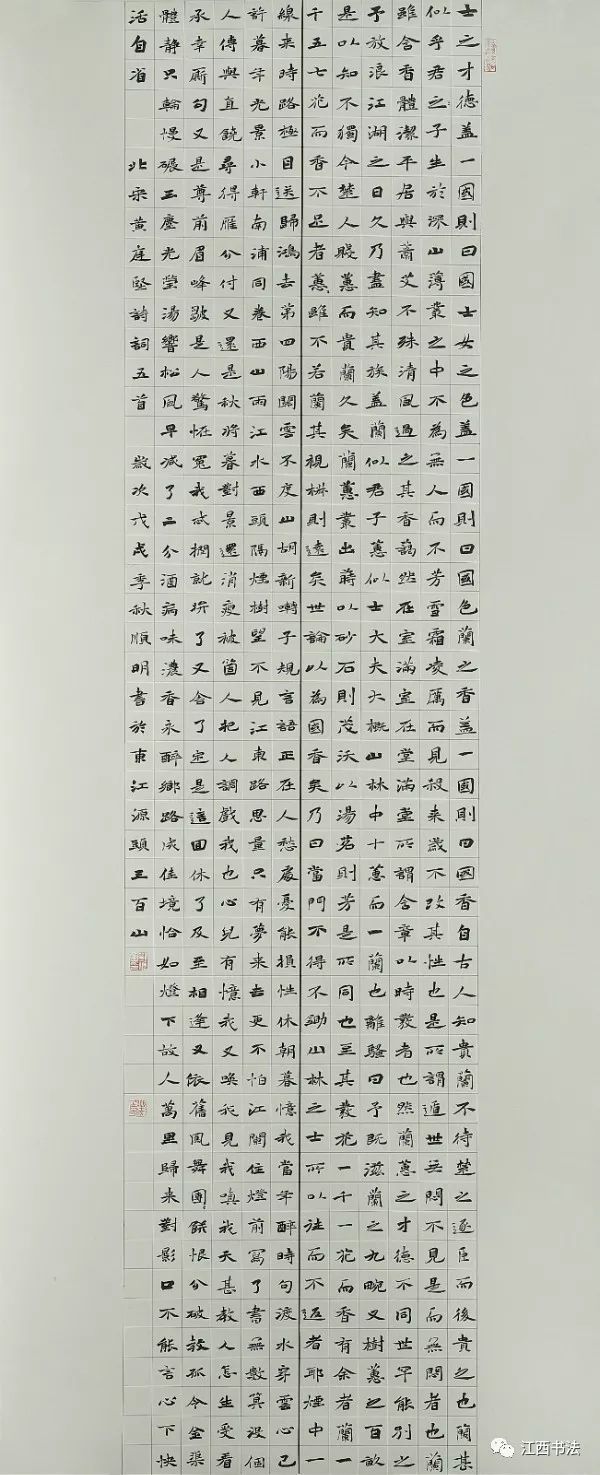 士之才德蓋一國則曰國士女之色蓋一國則曰國色蘭之香蓋一國則曰國香自古人知貴蘭不待楚之逐臣而後貴之也蘭甚
似乎君之子生於深山薄叢之中不為無人而不芳雪霜凌厲而見殺來歲不改其性也是所謂遁世無悶不見是而無悶者也蘭
雖含香體潔平居與蕭艾不殊清風過之其香藹然在室滿室在堂滿堂所謂含章以時發者也然蘭蕙之才德不同世罕能別之
予放浪江湖之日久乃盡知其族蓋蘭似君子蕙似士大夫大概山林中十蕙而一蘭也離騷曰予既滋蘭之九畹又樹蕙之百畝
是以知不獨今楚人賤蕙而貴蘭久矣蘭蕙叢出蒔以砂石則茂沃以湯茗則芳是所同也至其發花一千一花而香有余者蘭一
千五七花而香不足者蕙雖不若蘭其視椒則遠矣世論以為國香矣乃曰當門不得不鋤山林之士所以往而不返者耶煙中一
線來時路極目送歸鴻去第四陽關雲不度山胡新囀子規言語正在人愁處憂能損性休朝暮憶我當年醉時句渡水穿雲心已
許暮年光景小軒南浦同卷西山雨江水西頭隔煙樹望不見江東路思量只有夢來去更不怕江闌住燈前寫了書無數算沒個
人傳與直饒尋得雁分付又還是秋將暮對景還消瘦被箇人把人調戲我也心兒有憶我又喚我見我嗔我天甚教人怎生受看
承幸廝勾又是尊前眉峰皺是人驚怪冤我忒撋就拚了又舍了定是這回休了及至相逢又依舊鳳舞團餅恨分破教孤令金渠
體靜只輪慢碾玉塵光瑩湯響松風早減了二分酒病味濃香永醉鄉路成佳境恰如燈下故人萬里歸來對影口不能言心下快
活自省 北宋黃庭堅詩詞五首 歲次戊戌季秋順明書於東江源頭三百山
江西书法